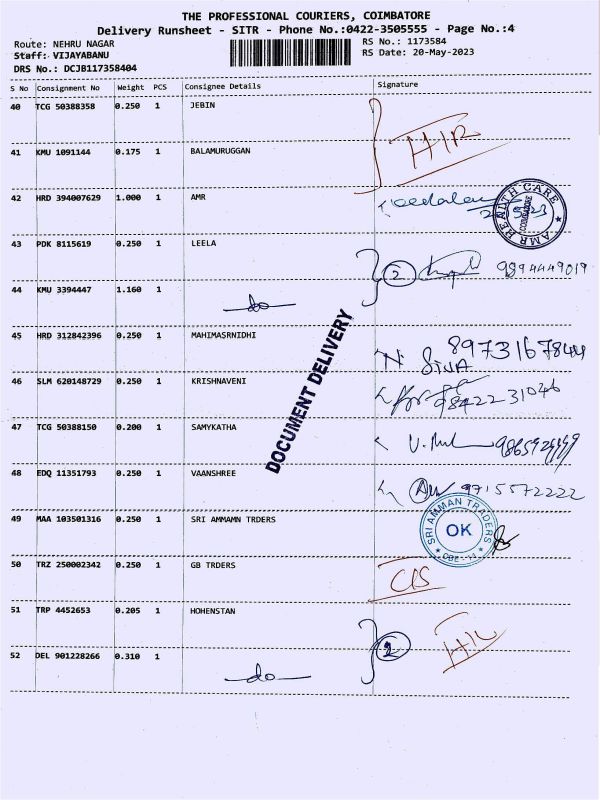 THE PROFESSIONAL COURIERS, COIMBATORE
Delivery Runsheet - SITR - Phone No.:0422-3505555 - Page No.:4
Route: NEHRU NAGAR RS No.: 1173584
Staff: VIJAYABANU RS Date: 20-May-2023
DRS No.: DCJB117358404
S No Consignment No Weight PCS Consignee Details Signature
40 TCG 50388358 0.250 1 JEBIN
41 KMU 1091144 0.175 1 BALAMURUGGAN
42 HRD 394007629 1.000 1 AMR
AMR HEALTH CARE
COIMBATORE
43 PDK 8115619 0.250 1 LEELA
2 9894449019
44 KMU 3394447 1.160 1
do
DOCUMENT DELIVERY
45 HRD 312842396 0.250 1 MAHIMASRNIDHI
N. SIVA 8973167844
46 SLM 620148729 0.250 1 KRISHNAVENI
98422 31046
47 TCG 50388150 0.200 1 SAMYKATHA
48 EDQ 11351793 0.250 1 VAANSHREE
9715572222
49 MAA 103501316 0.250 1 SRI AMMAMN TRDERS
SRI AMMAN TRADERS
OK
CBE - 11
50 TRZ 250002342 0.250 1 GB TRDERS
51 TRP 4452653 0.205 1 HOHENSTAN
2
52 DEL 901228266 0.310 1
do